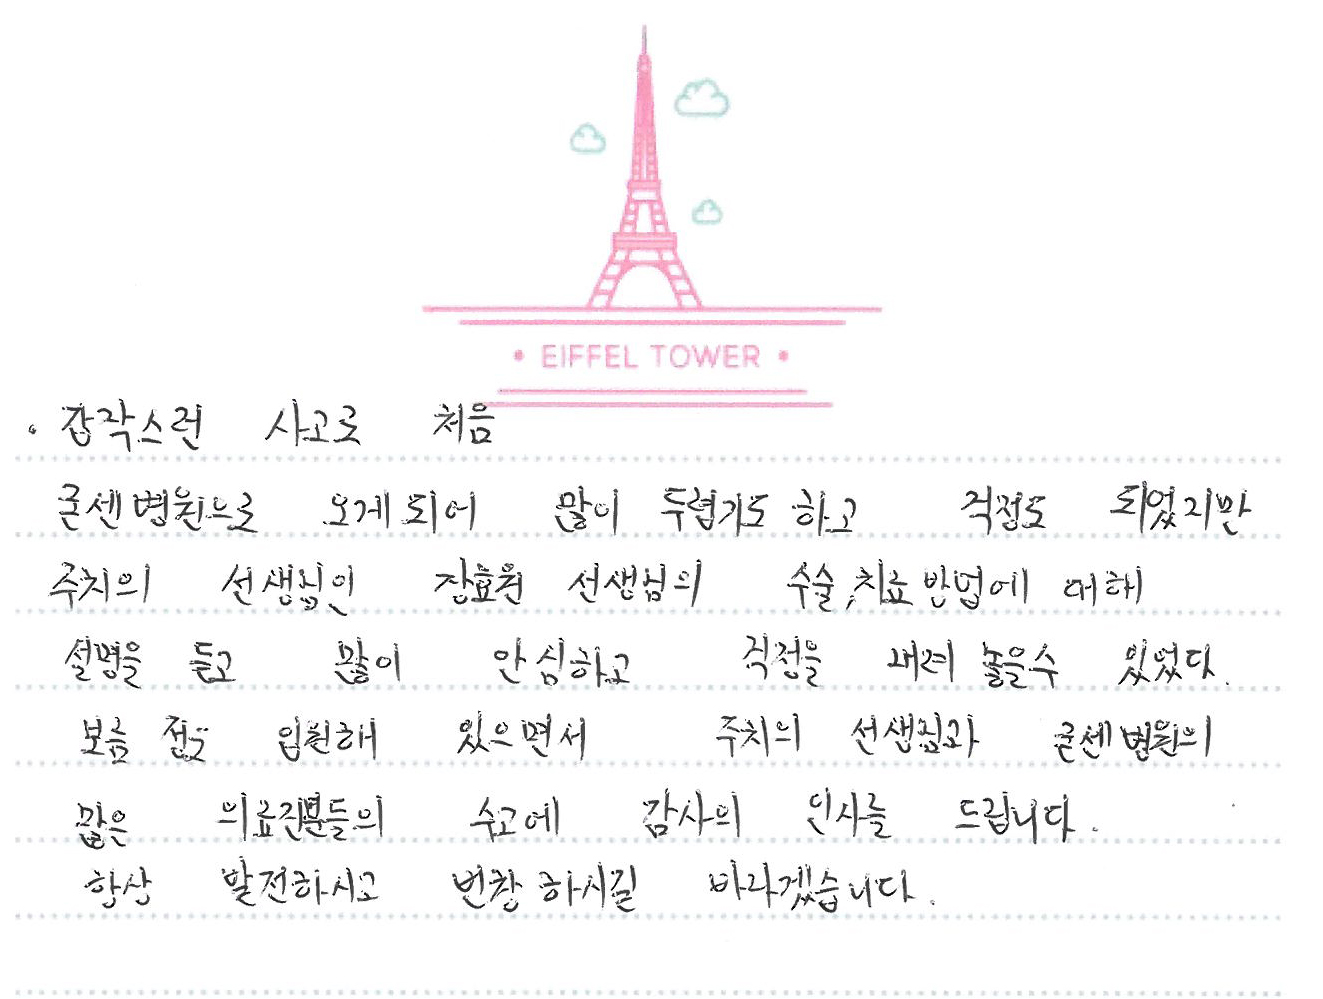 • EIFFEL TOWER •
. 갑작스런 사고로 처음
굳센병원으로 오게되어 많이 두렵기도 하고 걱정도 되었지만
주치의 선생님인 장효원 선생님의 수술,치료방법에 대해
설명을 듣고 많이 안심하고 걱정을 내려 놓을수 있었다.
보름 입원해 있으면서 주치의 선생님과 굳센병원의
많은 의료진분들의 수고에 감사의 인사를 드립니다.
항상 발전하시고 번창 하시길 바라겠습니다.